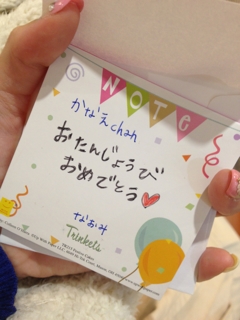 NOTE
かなえchan
おたんじょうび
おめでとう
なおみ
Trinkets